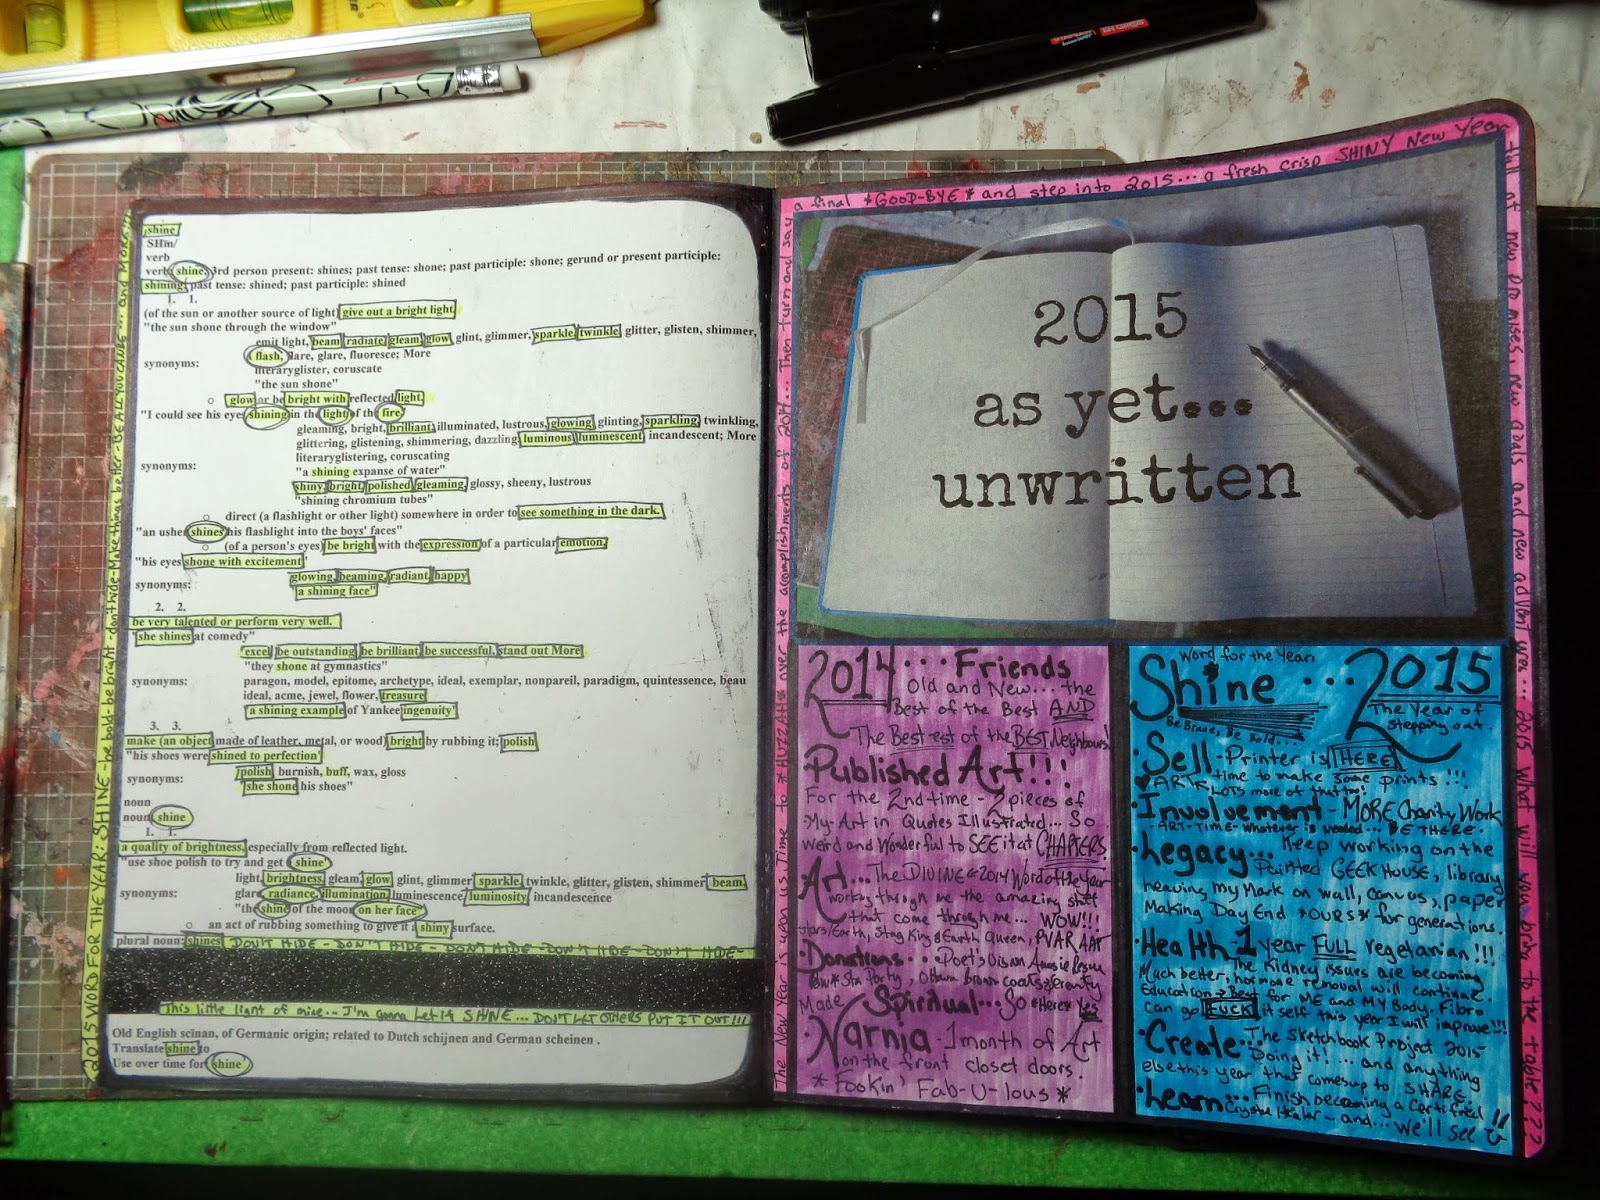 2015 WORD FOR THE YEAR: SHINE - be bold - be bright - don't hide - Make things better - BE ALL YOU CAN BE... and MORE!!!
shine
SHīn/
verb
verb: shine; 3rd person present: shines; past tense: shone; past participle: shone; gerund or present participle:
shining; past tense: shined; past participle: shined
1. 1.
(of the sun or another source of light) give out a bright light.
"the sun shone through the window"
emit light, beam, radiate, gleam, glow, glint, glimmer, sparkle, twinkle, glitter, glisten, shimmer,
synonyms: flash, flare, glare, fluoresce; More
literaryglister, coruscate
"the sun shone"
○ glow or be bright with reflected light.
"I could see his eyes shining in the light of the fire"
gleaming, bright, brilliant, illuminated, lustrous, glowing, glinting, sparkling, twinkling,
glittering, glistening, shimmering, dazzling, luminous, luminescent, incandescent; More
literaryglistering, coruscating
synonyms:
"a shining expanse of water"
shiny, bright, polished, gleaming, glossy, sheeny, lustrous
"shining chromium tubes"
○ direct (a flashlight or other light) somewhere in order to see something in the dark.
"an usher shines his flashlight into the boys' faces"
○ (of a person's eyes) be bright with the expression of a particular emotion.
"his eyes shone with excitement"
glowing, beaming, radiant, happy
synonyms:
"a shining face"
2. 2.
be very talented or perform very well.
"she shines at comedy"
excel, be outstanding, be brilliant, be successful, stand out More
"they shone at gymnastics"
synonyms: paragon, model, epitome, archetype, ideal, exemplar, nonpareil, paradigm, quintessence, beau
ideal, acme, jewel, flower, treasure
"a shining example of Yankee ingenuity"
3. 3.
make (an object made of leather, metal, or wood) bright by rubbing it; polish
"his shoes were shined to perfection"
synonyms: polish, burnish, buff, wax, gloss
"she shone his shoes"
noun
noun: shine
1. 1.
a quality of brightness, especially from reflected light.
"use shoe polish to try and get a shine"
light, brightness, gleam, glow, glint, glimmer, sparkle, twinkle, glitter, glisten, shimmer, beam,
synonyms: glare, radiance, illumination, luminescence, luminosity, incandescence
"the shine of the moon on her face"
○ an act of rubbing something to give it a shiny surface.
plural noun: shines DON'T HIDE - DON'T HIDE - DON'T HIDE - DON'T HIDE - DON'T HIDE -
This little light of mine... I'm gonna Let it SHINE... DON'T LET OTHERS PUT IT OUT!!!
Old English scīnan, of Germanic origin; related to Dutch schijnen and German scheinen .
Translate shine to
Use over time for: shine
The New Year is upon us. Time to *HUZZAH* over the accomplishments of 2014... Then turn and say
a final *GOOD-BYE* and step into 2015... a fresh crisp SHINY New Year
full of new promises, new goals and new adventures... 2015 what will you bring to the table???
2015
as yet...
unwritten
2014... Friends
Old and New... the
Best of the Best AND
The Best-est of the BEST Neighbours!
Published Art!!!
For the 2nd time - 2 pieces of
My Art in Quotes Illustrated... So
weird and Wonderful to SEE it at CHAPTERS.
Art... The DIVINE & 2014 Word of the Year
working through me the amazing stuff
that come through me... WOW!!!
Stars/Earth, Stag King & Earth Queen,
Donations...
Made Spiritual... So *Here* Yes
Narnia - 1 month of Art
on the front closet doors.
* Fookin' Fab-U-lous *
Word for the Year
Shine... 2015
Be Brave, Be Bold...
The Year of
Stepping out
• Sell - Printer is HERE
time to make some prints!!!
♥ ARTs LOTS more of that too!
• Involvement - MORE Charity Work
- ART - TIME - whatever is needed... BE THERE.
• Legacy... Keep working on the
painted GEEK HOUSE, library
leaving my Mark on wall, canvas, paper
Making Day End *OURS* for generations.
• Health - 1 year FULL vegetarian!!!
The Kidney issues are becoming
Much better, hormone removal will continue.
Education → Best for ME and MY Body. Fibro
can go FUCK itself this year I will improve!!!
• Create... The Sketchbook Project 2015
Doing it! ... and anything
else this year that comes up to SHARE.
• Learn... Finish becoming a Certified
Crystal Healer... and... we'll see